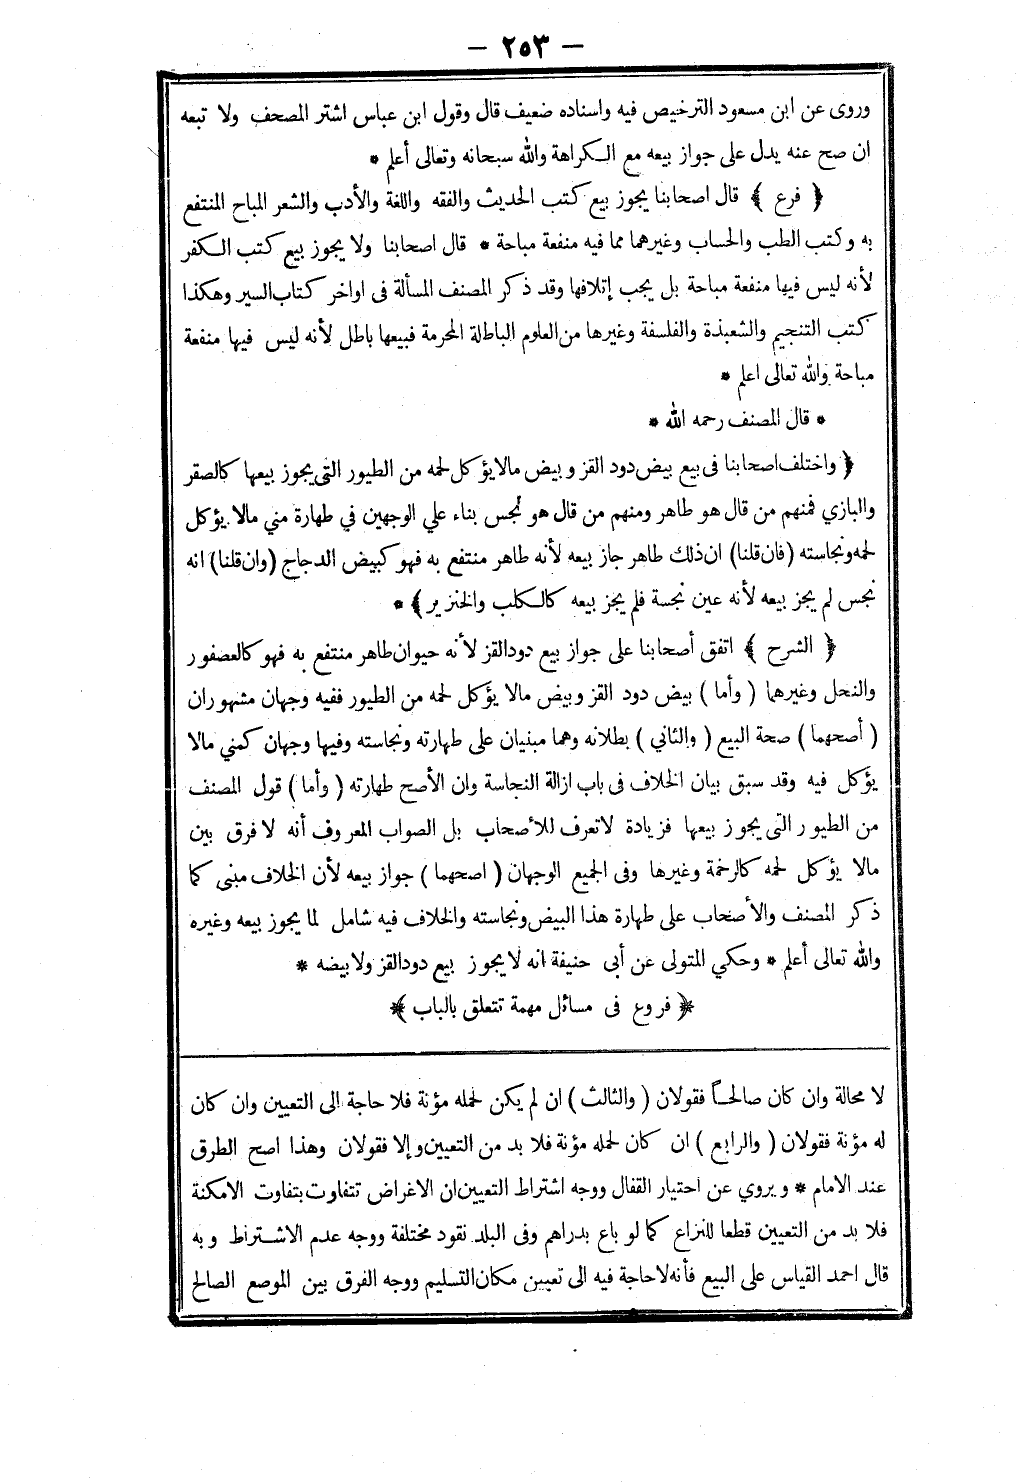 — ٢٥٣ —
وروى عن ابن مسعود الترخيص فيه واسناده ضعيف قال وقول ابن عباس اشتر المصحف ولا تبعه
ان صح عنه يدل على جواز بيعه مع الكراهة والله سبحانه وتعالى أعلم *
﴿ فرع ﴾ قال اصحابنا يجوز بيع كتب الحديث والفقه واللغة والأدب والشعر المباح المنتفع
به وكتب الطب والحساب وغيرهما مما فيه منفعة مباحة * قال اصحابنا ولا يجوز بيع كتب الكفر
لأنه ليس فيها منفعة مباحة بل يجب إتلافها وقد ذكر المصنف المسألة فى اواخر كتاب السير وهكذا
كتب التنجيم والشعبذة والفلسفة وغيرها من العلوم الباطلة المحرمة فبيعها باطل لأنه ليس فيها منفعة
مباحة والله تعالى اعلم *
* قال المصنف رحمه الله *
﴿ واختلف اصحابنا فى بيع بيض دود القز وبيض مالا يؤكل لحمه من الطيور التى يجوز بيعها كالصقر
والبازي فمنهم من قال هو طاهر ومنهم من قال هو نجس بناء علي الوجهين في طهارة مني مالا يؤكل
لحمه ونجاسته (فان قلنا) ان ذلك طاهر جاز بيعه لأنه طاهر منتفع به فهو كبيض الدجاج (وان قلنا) انه
نجس لم يجز بيعه لأنه عين نجسة فلم يجز بيعه كالكلب والخنزير ﴾ *
﴿ الشرح ﴾ اتفق أصحابنا على جواز بيع دود القز لأنه حيوان طاهر منتفع به فهو كالعصفور
والنحل وغيرهما ( وأما ) بيض دود القز وبيض مالا يؤكل لحمه من الطيور ففيه وجهان مشهوران
( أصحهما ) صحة البيع ( والثاني ) بطلانه وهما مبنيان على طهارته ونجاسته وفيها وجهان كمني مالا
يؤكل فيه وقد سبق بيان الخلاف فى باب ازالة النجاسة وان الأصح طهارته ( وأما ) قول المصنف
من الطيور التى يجوز بيعها فزيادة لا تعرف للأصحاب بل الصواب المعروف أنه لا فرق بين
مالا يؤكل لحمه كالرخمة وغيرها وفى الجميع الوجهان ( اصحهما ) جواز بيعه لأن الخلاف مبنى كما
ذكر المصنف والأصحاب على طهارة هذا البيض ونجاسته والخلاف فيه شامل لما يجوز بيعه وغيره
والله تعالى أعلم * وحكي المتولى عن أبى حنيفة انه لا يجوز بيع دود القز ولا بيضه *
﴿* فروع فى مسائل مهمة تتعلق بالباب *﴾
لا محالة وان كان صالحاً فقولان ( والثالث ) ان لم يكن لحمله مؤنة فلا حاجة الى التعيين وان كان
له مؤنة فقولان ( والرابع ) ان كان لحمله مؤنة فلا بد من التعيين وإلا فقولان وهذا اصح الطرق
عند الامام * ويروي عن اختيار القفال ووجه اشتراط التعيين ان الاغراض تتفاوت بتفاوت الامكنة
فلا بد من التعيين قطعا للنزاع كما لو باع بدراهم وفى البلد نقود مختلفة ووجه عدم الاشتراط وبه
قال احمد القياس على البيع فأنه لا حاجة فيه الى تعيين مكان التسليم ووجه الفرق بين الموضع الصالح